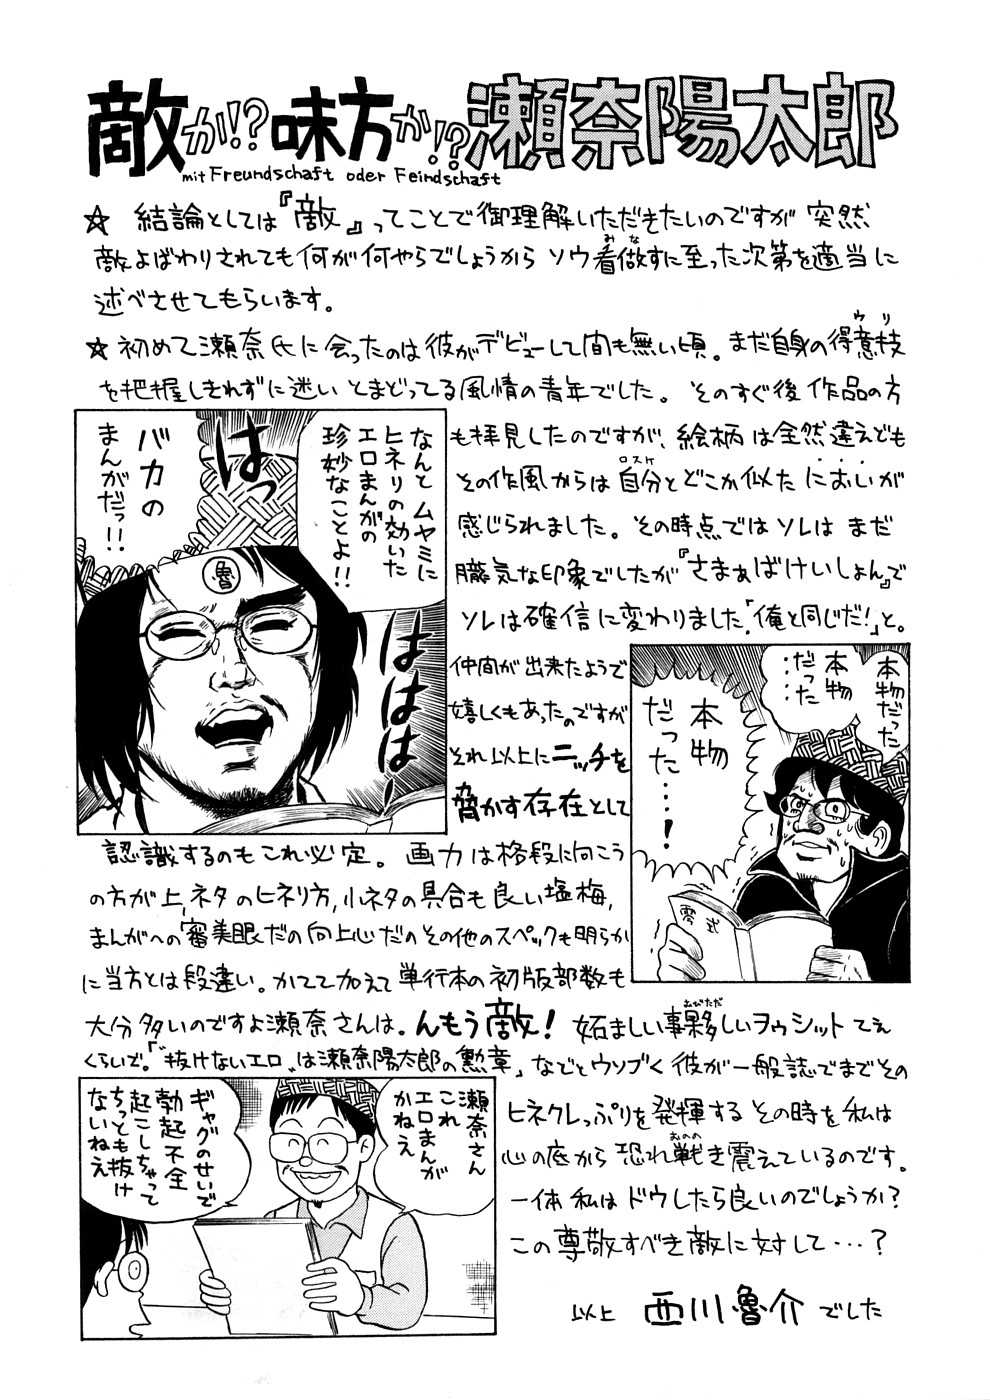 敵か!?味方か!?瀬奈陽太郎
mit Freundschaft oder Feindschaft
☆ 結論としては『敵』ってことで御理解いただきたいのですが 突然
敵よばわりされても何が何やらでしょうから ソウ看做すに至った次第を適当に
みな
述べさせてもらいます。
☆初めて瀬奈氏に会ったのは彼がデビューして間も無い頃。まだ自身の得意技
ウリ
を把握しきれずに迷い とまどってる風情の青年でした。そのすぐ後 作品の方
も拝見したのですが、絵柄は全然違えども
その作風からは自分とどこか似たにおいが
ロスケ
感じられました。その時点ではソレはまだ
朧気な印象でしたが『さまぁばけいしょん』で
ソレは確信に変わりました「俺と同じだ!」と。
なんとムヤミに
ヒネリの効いた
エロまんがの
珍妙なことよ!!
はっ
バカの
まんがだっ!!
魯
ははは
仲間が出来たようで
嬉しくもあったのですが
それ以上にニッチを
脅かす存在として
本物だった
本物
だった
……
本物
だった……!
零式
認識するのもこれ必定。画力は格段に向こう
の方が上、ネタのヒネリ方,小ネタの具合も良い塩梅,
まんがへの審美眼だの向上心だのその他のスペックも明らか
に当方とは段違い。かてて加えて単行本の初版部数も
大分多いのですよ瀬奈さんは。んもう敵! 妬ましい事夥しいヲゥシット てぇ
おびただ
くらいで。「〝抜けないエロ〟は瀬奈陽太郎の勲章」などとウソブく彼が一般誌でまでその
ヒネクレっぷりを発揮するその時を私は
心の底から恐れ戦き震えているのです。
おのの
一体私はドウしたら良いのでしょうか?
この尊敬すべき敵に対して…?
瀬奈さん
これ
エロまんが
かねえ
ギャグのせいで
勃起不全
起こしちゃって
ちっとも抜け
ないねえ
以上 西川魯介でした